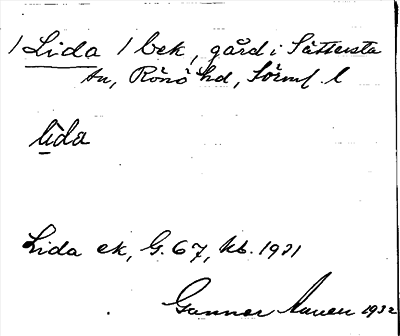 1 Lida 1 bek, gård i Sättersta
sn, Rönö hd, Sörml. l
lida
Lida ek, G. 67, kb. 1931
Gunnar 1932